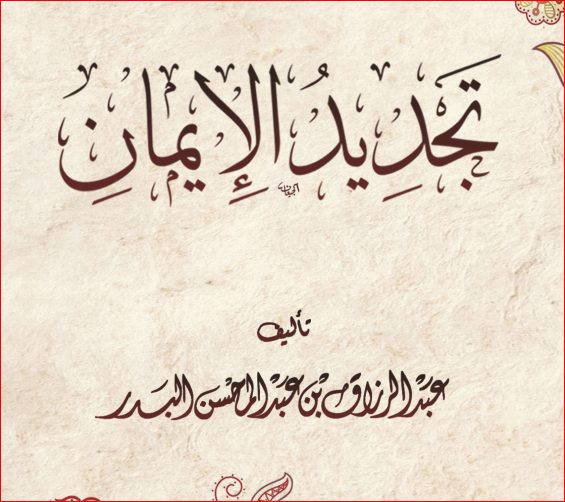 تَجْدِيدُ الإِيمَانِ
تأليف
عَبْد الرزاق بْن عَبْد المحْسن البَدر